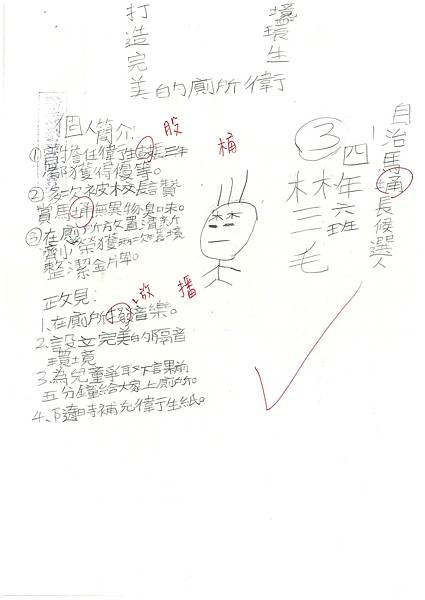 打造完美的廁所衛生環境
自治馬通長候選人
③
四年六班
林三毛
個人簡介:
①曾擔任衛生 長三年
都獲得優等。
股
②多次被校長贊
賞馬 無異物臭味。
桶
③在廁所放置清新
劑榮獲兩次環境
整潔金牌。
政見:
1、在廁所撥音樂。
放 播
2、設立完美的隔音
環境
3、為兒童爭取下課前
五分鐘給大家上廁所。
4、隨時補充衛生紙。